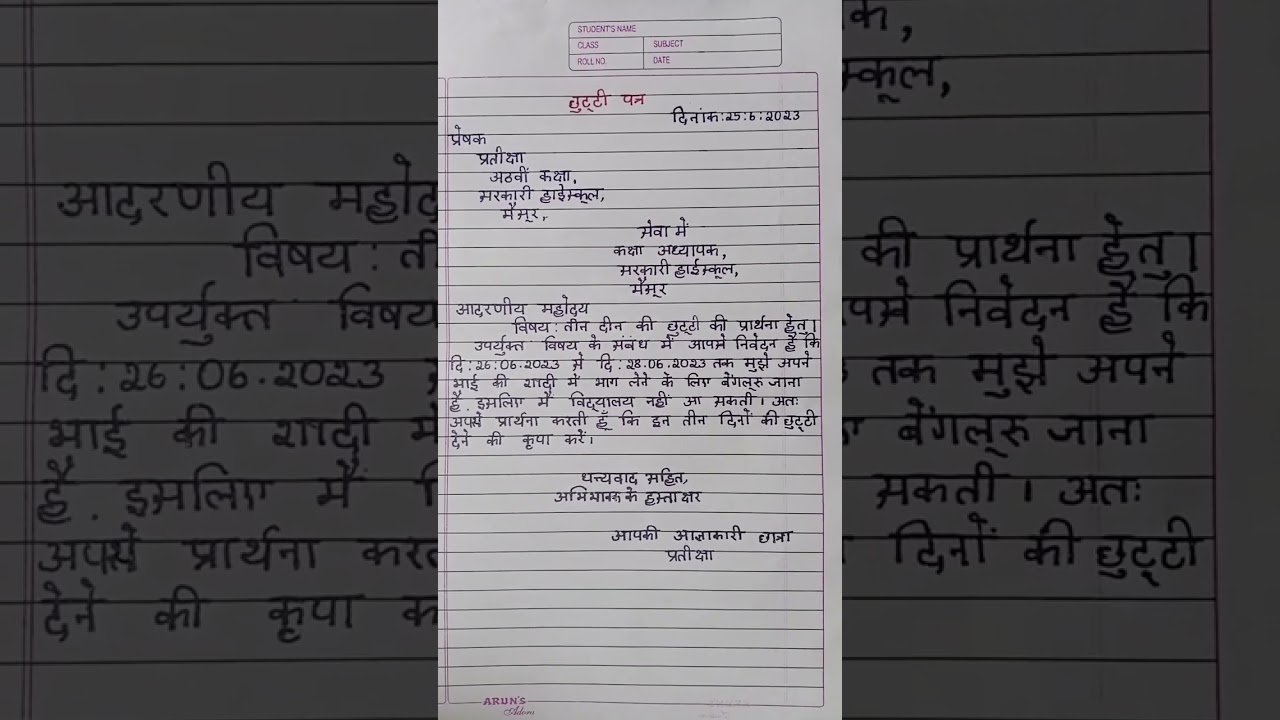 STUDENT'S NAME
CLASS SUBJECT
ROLL NO. DATE
छुट्टी पत्र
दिनांक:25:6:2023
प्रेषक
प्रतीक्षा
आठवीं कक्षा,
सरकारी हाईस्कूल,
मैसूर,
सेवा में
कक्षा अध्यापक,
सरकारी हाईस्कूल,
मैसूर
आदरणीय महोदय
विषय : तीन दीन की छुट्टी की प्रार्थना हेतु।
उपर्युक्त विषय के संबंध में आपसे निवेदन है कि
दि : 26:06.2023 से दि : 28.06.2023 तक मुझे अपने
भाई की शादी में भाग लेने के लिए बेंगलूरु जाना
है. इसलिए मैं विद्यालय नहीं आ सकती। अतः
अपसे प्रार्थना करती हूँ कि इन तीन दिनों की छुट्टी
देने की कृपा करें।
धन्यवाद सहित,
अभिभावक के हस्ताक्षर
आपकी आज्ञाकारी छात्रा
प्रतीक्षा
ARUN'S
Adora